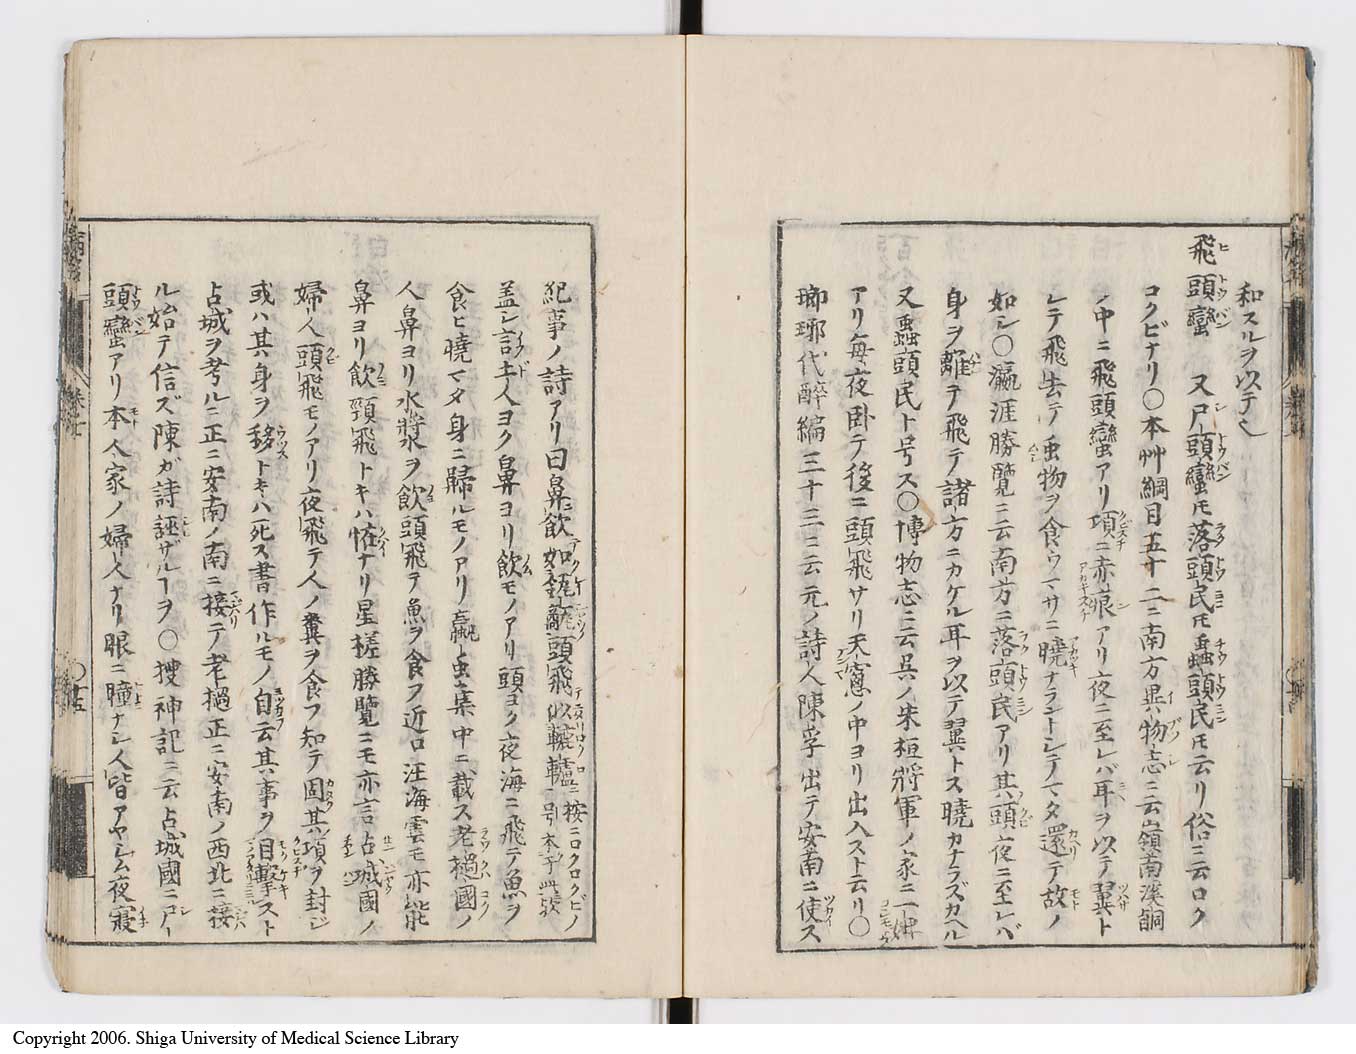 和スルヲ以テ也
飛頭蠻 又尸頭蠻モ落頭民モ蟲頭民モ云リ俗ニ云ロク
コクビナリ〇本艸綱目五十二ニ南方異物志ニ云嶺南溪峒
ノ中ニ飛頭蠻アリ項ニ赤痕アリ夜ニ至レバ耳ヲ以テ翼ト
レテ飛去テ虫物ヲ食ウマサニ曉ナラントレテマタ還テ故ノ
如シ〇瀛涯勝覽ニ云南方ニ落頭民アリ其頭夜ニ至レバ
身ヲ離テ飛テ諸方ニカケル耳ヲ以テ翼トス曉カナラズカヘル
又蟲頭民ト号ス〇博物志ニ云呉ノ朱桓將軍ノ家ニ一婢
アリ毎夜卧テ後ニ頭飛サリ天窓ノ中ヨリ出入スト云リ〇
瑯琊代醉編三十三ニ云元ノ詩人陳孚出テ安南ニ使ス
紀事ノ詩アリ曰鼻飲如瓴甋頭飛似轆轤 按ニロクロクビノ号本于此歟
蓋シ言土人ヨク鼻ヨリ飲モノアリ頭ヨク夜海ニ飛テ魚ヲ
食ヒ曉マタ身ニ歸ルモノアリ蠃虫集中ニ載ス老撾國ノ
人鼻ヨリ水漿ヲ飲頭飛テ魚ヲ食フ近ロ汪海雲モ亦能
鼻ヨリ飲頸飛トキハ恠ナリ星槎勝覽ニモ亦言占城國ノ
婦人頭飛モノアリ夜飛テ人ノ糞ヲ食フ知テ固其項ヲ封ジ
或ハ其身ヲ移トキハ死ス書作ルモノ自云其事ヲ目撃スト
占城ヲ考ルニ正ニ安南ノ南ニ接テ老撾正ニ安南ノ西北ニ接
ル始テ信ズ陳ガ詩誣ザルヿヲ〇搜神記ニ云占城國ニ尸
頭蠻アリ本人家ノ婦人ナリ眼ニ瞳ナシ人皆アヤシム夜寢
Copyright 2006. Shiga University of Medical Science Library